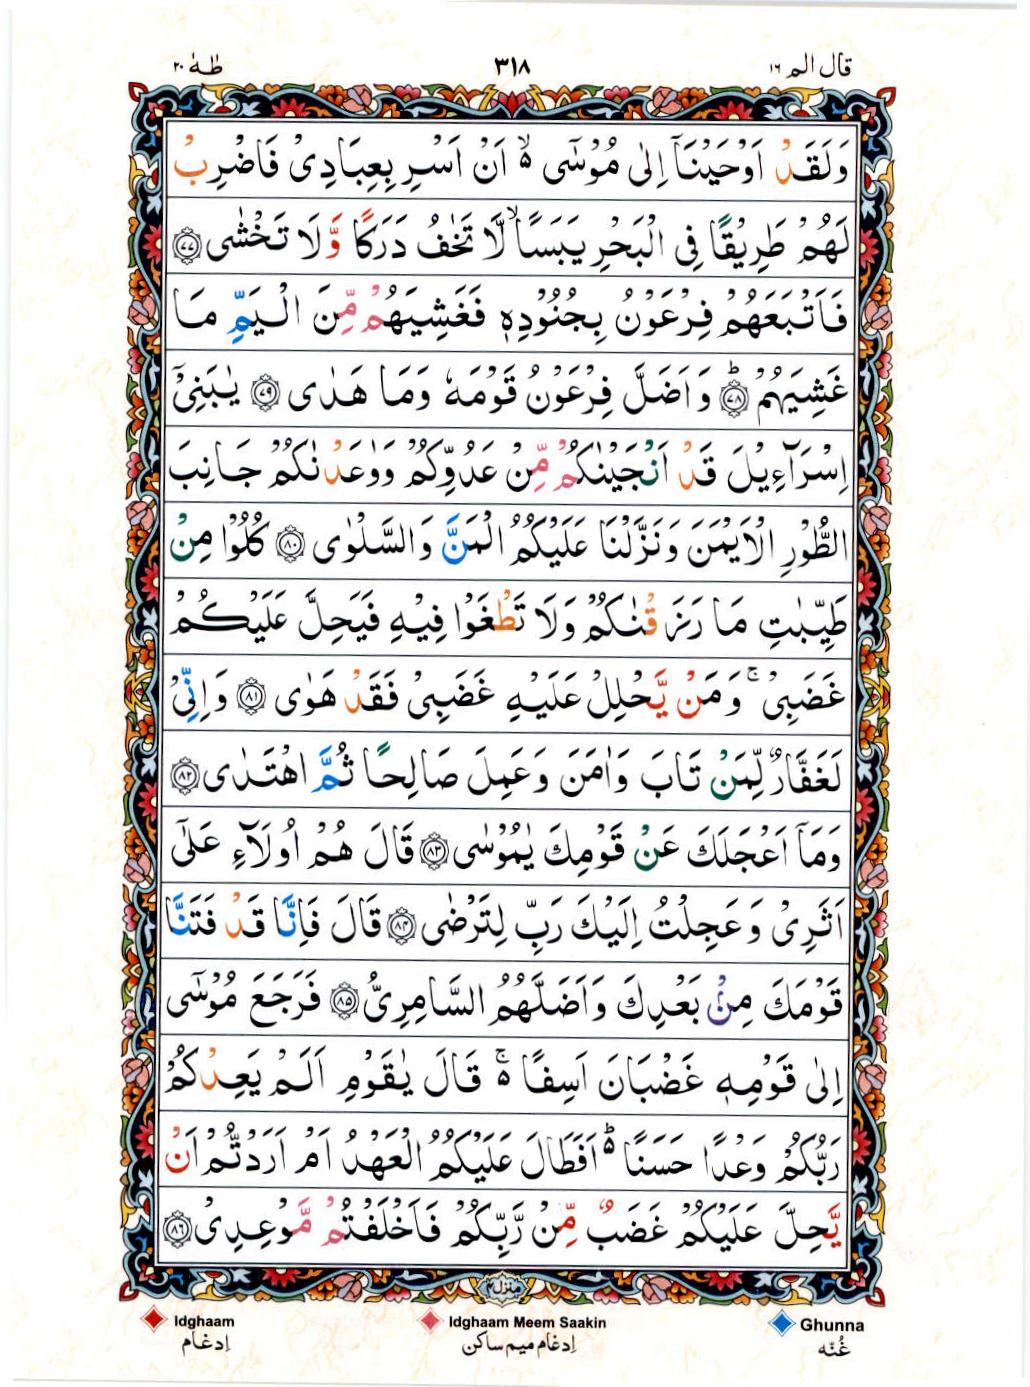 قال الم ١٦
٣١٨
طٰهٰ ٢٠
وَلَقَدْ اَوْحَيْنَاۤ اِلٰى مُوْسٰۤى ۙ۬ اَنْ اَسْرِ بِعِبَادِىْ فَاضْرِبْ
لَهُمْ طَرِيْقًا فِى الْبَحْرِ يَبَسًا ۙ لَّا تَخٰفُ دَرَكًا وَّلَا تَخْشٰى ﴿٧٧﴾
فَاَتْبَعَهُمْ فِرْعَوْنُ بِجُنُوْدِهٖ فَغَشِيَهُمْ مِّنَ الْيَمِّ مَا
غَشِيَهُمْ ؕ ﴿٧٨﴾ وَاَضَلَّ فِرْعَوْنُ قَوْمَهٗ وَمَا هَدٰى ﴿٧٩﴾ يٰبَنِىْۤ
اِسْرَآءِيْلَ قَدْ اَنْجَيْنٰكُمْ مِّنْ عَدُوِّكُمْ وَوٰعَدْنٰكُمْ جَانِبَ
الطُّوْرِ الْاَيْمَنَ وَنَزَّلْنَا عَلَيْكُمُ الْمَنَّ وَالسَّلْوٰى ﴿٨٠﴾ كُلُوْا مِنْ
طَيِّبٰتِ مَا رَزَقْنٰكُمْ وَلَا تَطْغَوْا فِيْهِ فَيَحِلَّ عَلَيْكُمْ
غَضَبِىْ ۚ وَمَنْ يَّحْلِلْ عَلَيْهِ غَضَبِىْ فَقَدْ هَوٰى ﴿٨١﴾ وَاِنِّىْ
لَغَفَّارٌ لِّمَنْ تَابَ وَاٰمَنَ وَعَمِلَ صَالِحًا ثُمَّ اهْتَدٰى ﴿٨٢﴾
وَمَاۤ اَعْجَلَكَ عَنْ قَوْمِكَ يٰمُوْسٰى ﴿٨٣﴾ قَالَ هُمْ اُولَآءِ عَلٰٓى
اَثَرِىْ وَعَجِلْتُ اِلَيْكَ رَبِّ لِتَرْضٰى ﴿٨٤﴾ قَالَ فَاِنَّا قَدْ فَتَنَّا
قَوْمَكَ مِنْۢ بَعْدِكَ وَاَضَلَّهُمُ السَّامِرِىُّ ﴿٨٥﴾ فَرَجَعَ مُوْسٰۤى
اِلٰى قَوْمِهٖ غَضْبَانَ اَسِفًا ۬ۚ قَالَ يٰقَوْمِ اَلَمْ يَعِدْكُمْ
رَبُّكُمْ وَعْدًا حَسَنًا ؕ۬ اَفَطَالَ عَلَيْكُمُ الْعَهْدُ اَمْ اَرَدْتُّمْ اَنْ
يَّحِلَّ عَلَيْكُمْ غَضَبٌ مِّنْ رَّبِّكُمْ فَاَخْلَفْتُمْ مَّوْعِدِىْ ﴿٨٦﴾
منزل ٤
Idghaam
Idghaam Meem Saakin
Ghunna
إدغام
إدغام ميم ساكن
غُنّه